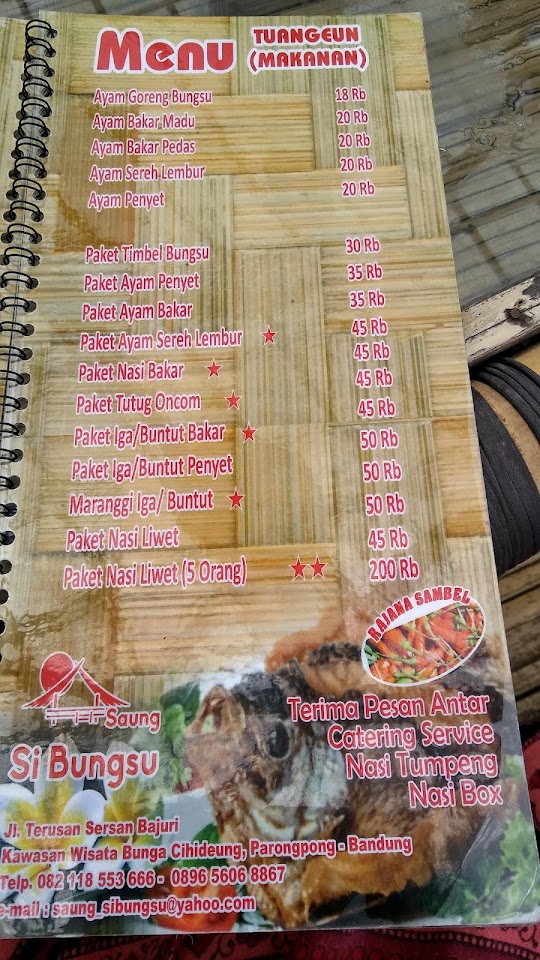 Menu TUANGEUN (MAKANAN)
Ayam Goreng Bungsu 18 Rb
Ayam Bakar Madu 20 Rb
Ayam Bakar Pedas 20 Rb
Ayam Sereh Lembur 20 Rb
Ayam Penyet 20 Rb
Paket Timbel Bungsu 30 Rb
Paket Ayam Penyet 35 Rb
Paket Ayam Bakar 35 Rb
Paket Ayam Sereh Lembur 45 Rb
45 Rb
Paket Nasi Bakar 45 Rb
Paket Tutug Oncom 45 Rb
Paket Iga/Buntut Bakar 50 Rb
Paket Iga/Buntut Penyet 50 Rb
Maranggi Iga/ Buntut 50 Rb
Paket Nasi Liwet 45 Rb
Paket Nasi Liwet (5 Orang) 200 Rb
RAJANA SAMBEL
Saung
Si Bungsu
Terima Pesan Antar
Catering Service
Nasi Tumpeng
Nasi Box
Jl. Terusan Sersan Bajuri
Kawasan Wisata Bunga Cihideung, Parongpong - Bandung
Telp. 082 118 553 666 - 0896 5606 8867
e-mail : saung_sibungsu@yahoo.com